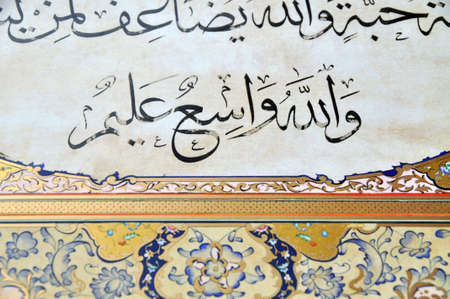 حَبَّةٍ وَاللَّه يُضَاعِف لِمَن
وَاللَّهُ وَاسِعٌ عَلِيمٌ